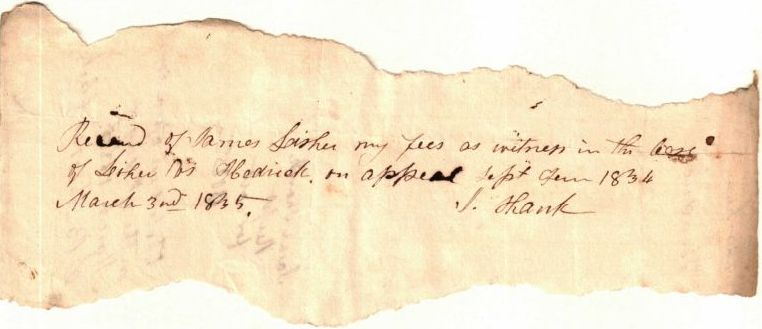 Received of James Lisher my fees as witness in the Case
of Lisher vs Hedrick. on appeal Sept Term 1834
March 3nd 1835.
J. Shank